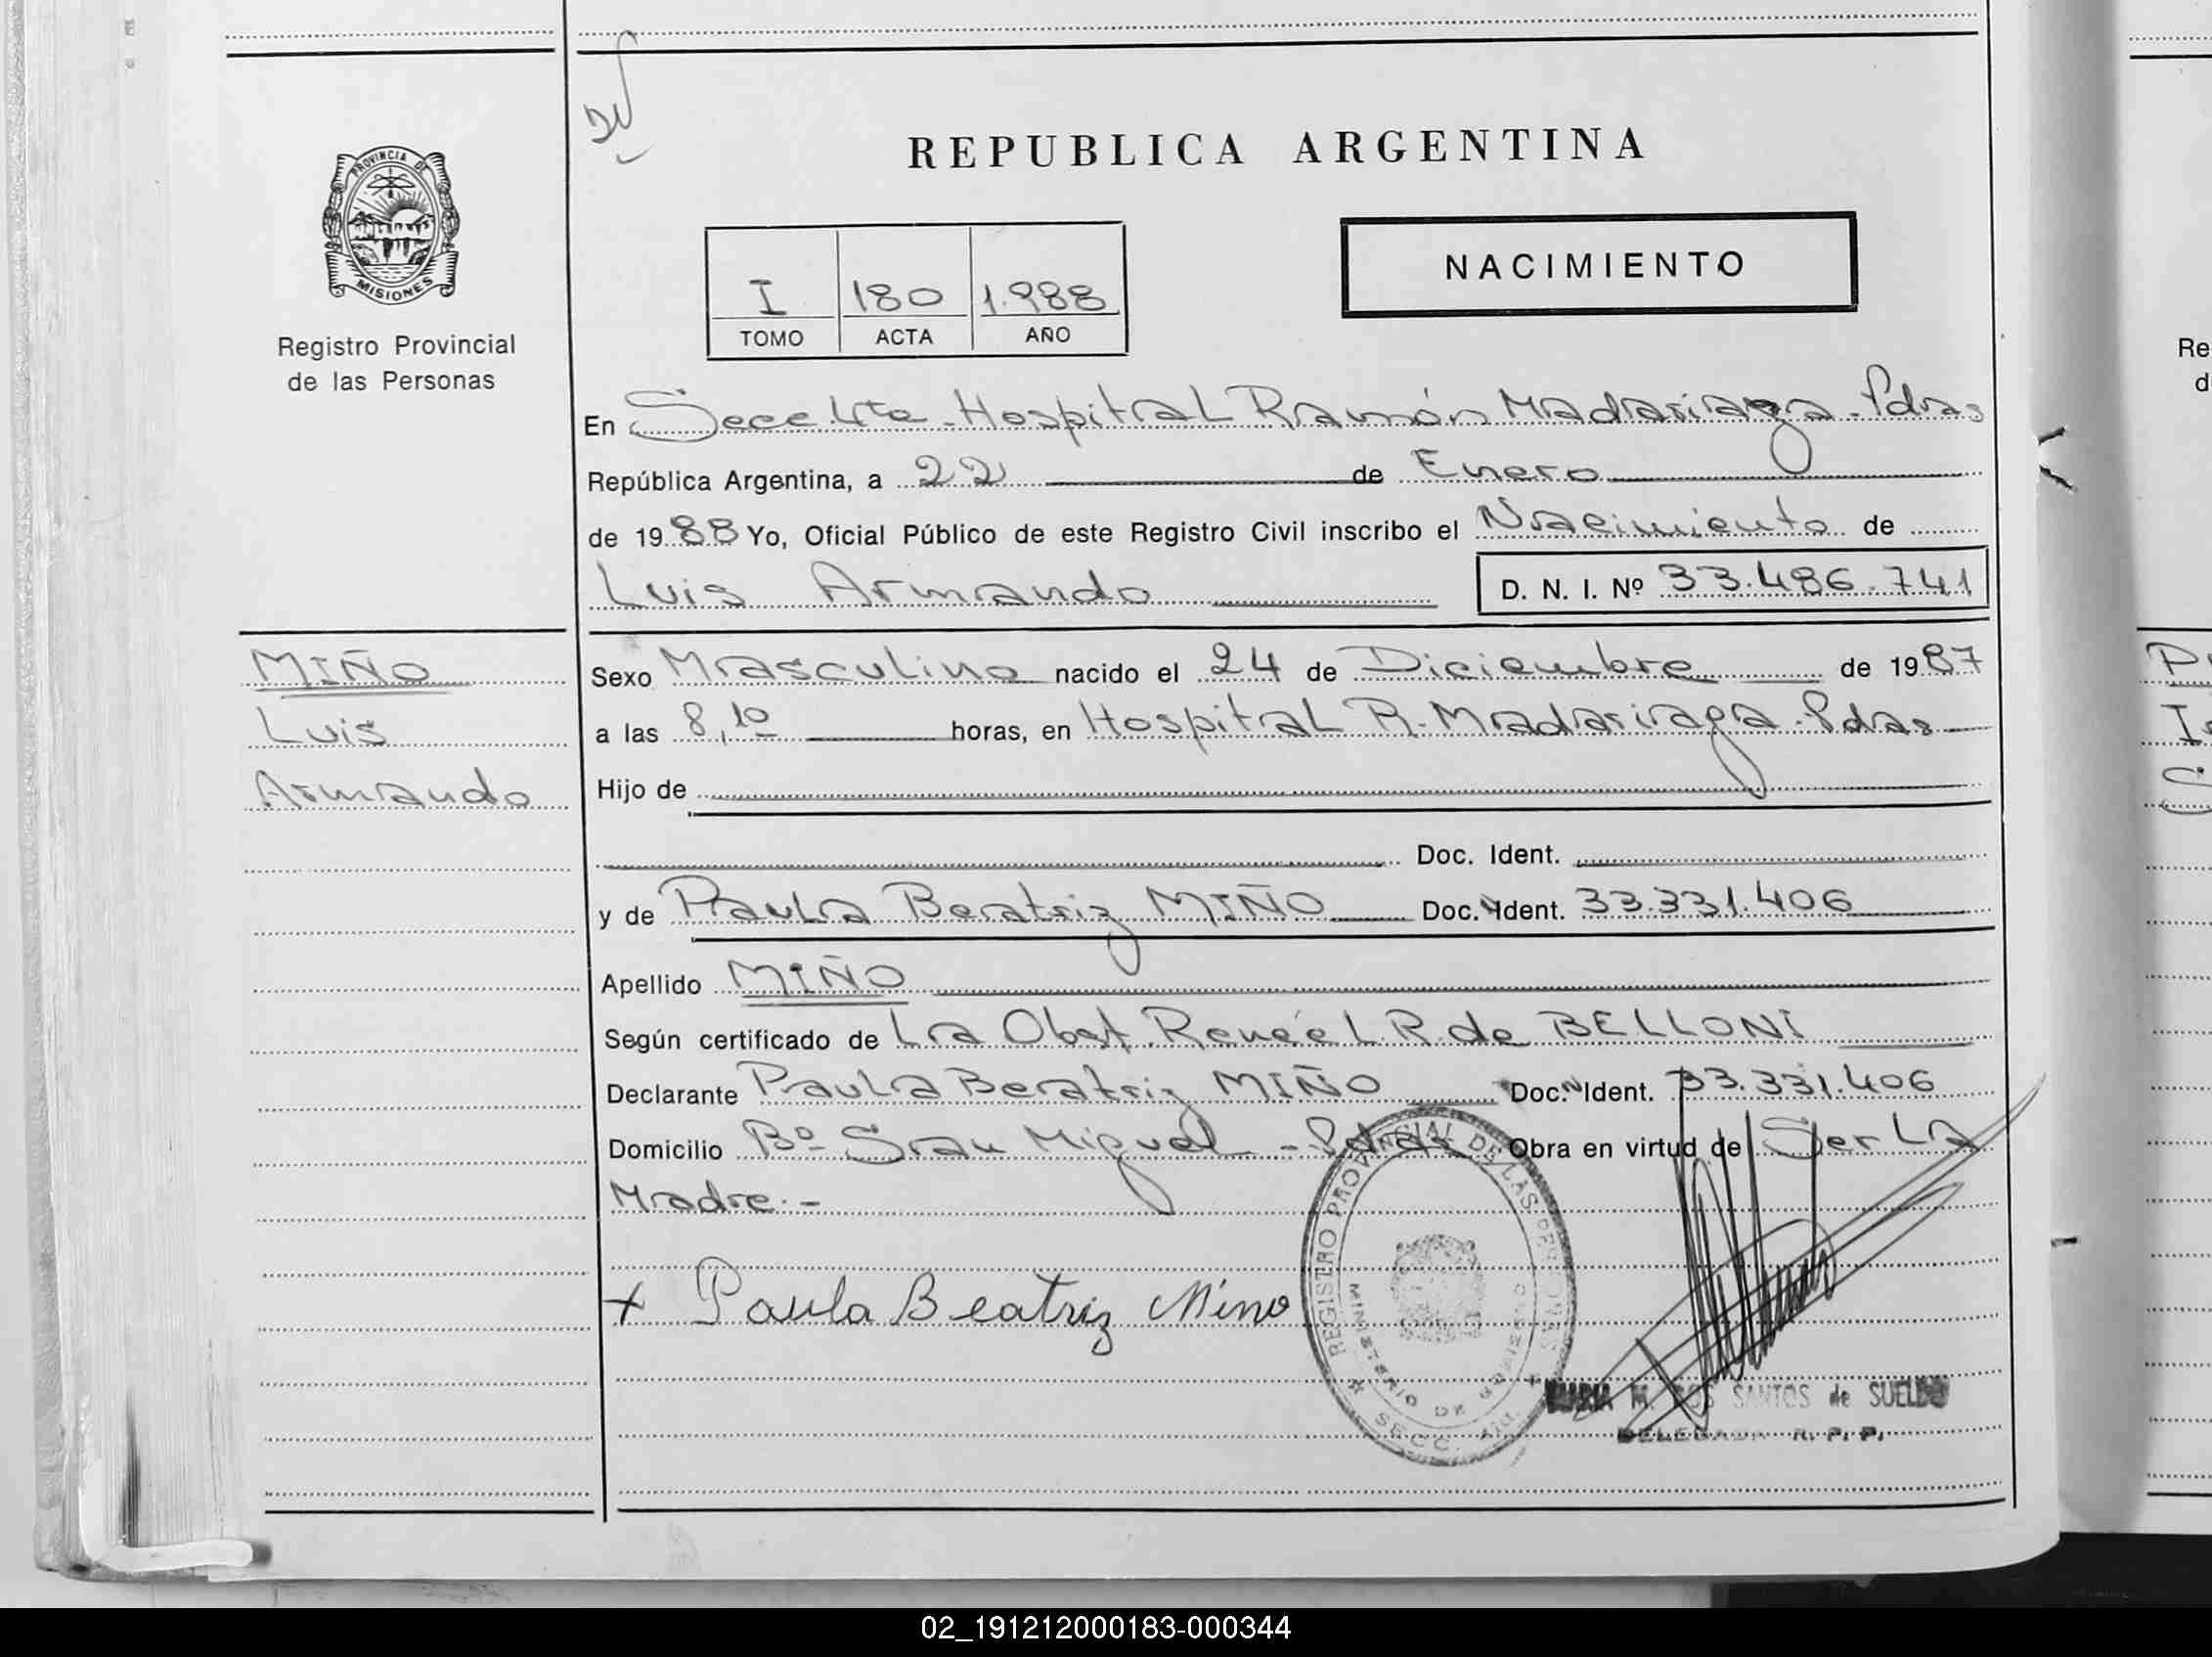 REPUBLICA ARGENTINA
PROVINCIA DE
MISIONES
Registro Provincial
de las Personas
NACIMIENTO
I 180 1.988
TOMO ACTA AÑO
En Secc. 4ta - Hospital Ramón Madariaga - Pdas
República Argentina, a 22 de Enero
de 19 88 Yo, Oficial Público de este Registro Civil inscribo el Nacimiento de
Luis Armando D. N. I. Nº 33.486.741
MIÑO
Luis
Armando
Sexo Masculino nacido el 24 de Diciembre de 19 87
a las 8,10 horas, en Hospital R. Madariaga - Pdas
Hijo de
Doc. Ident.
y de Paula Beatriz MIÑO Doc. Ident. 33.331.406
Apellido MIÑO
Según certificado de La Obst. Renée L. R. de BELLONI
Declarante Paula Beatriz MIÑO Doc. Ident. 33.331.406
Domicilio Bº San Miguel - Pdas Obra en virtud de Ser La
Madre.-
+ Paula Beatriz Mino
REGISTRO PROVINCIAL DE LAS PERSONAS
MINISTERIO DE GOBIERNO
SECC.
MARIA M. DOS SANTOS de SUELDO
DELEGADA R. P. P.
Re
d
02_191212000183-000344